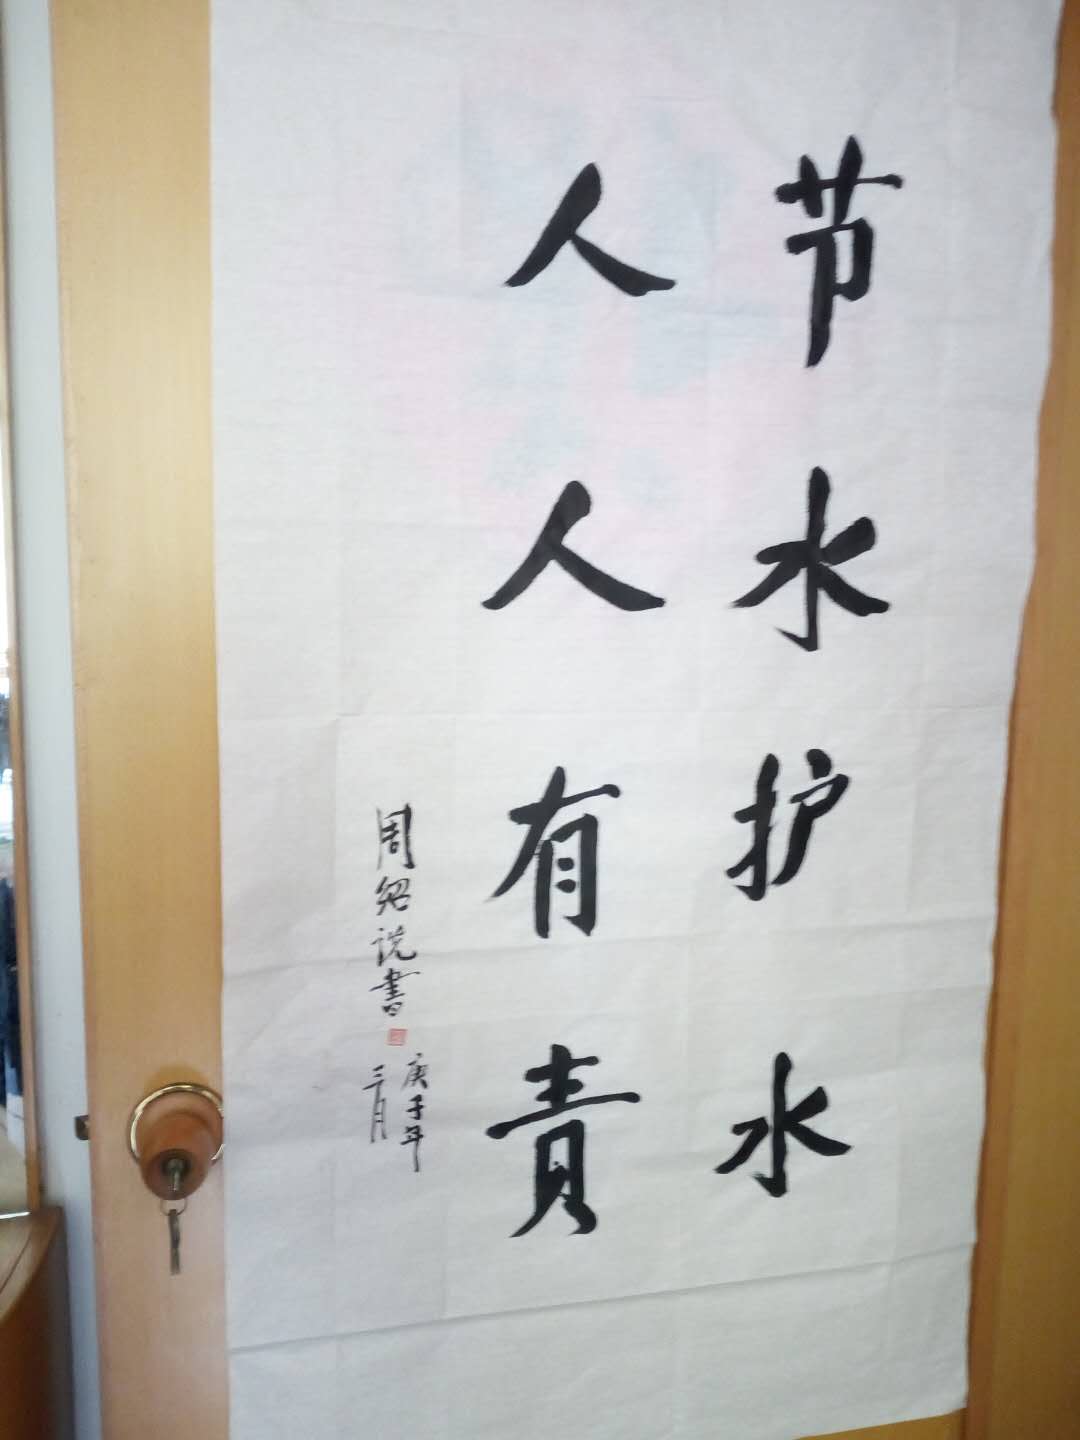 节水护水
人人有责
周绍说書
庚子年
三月